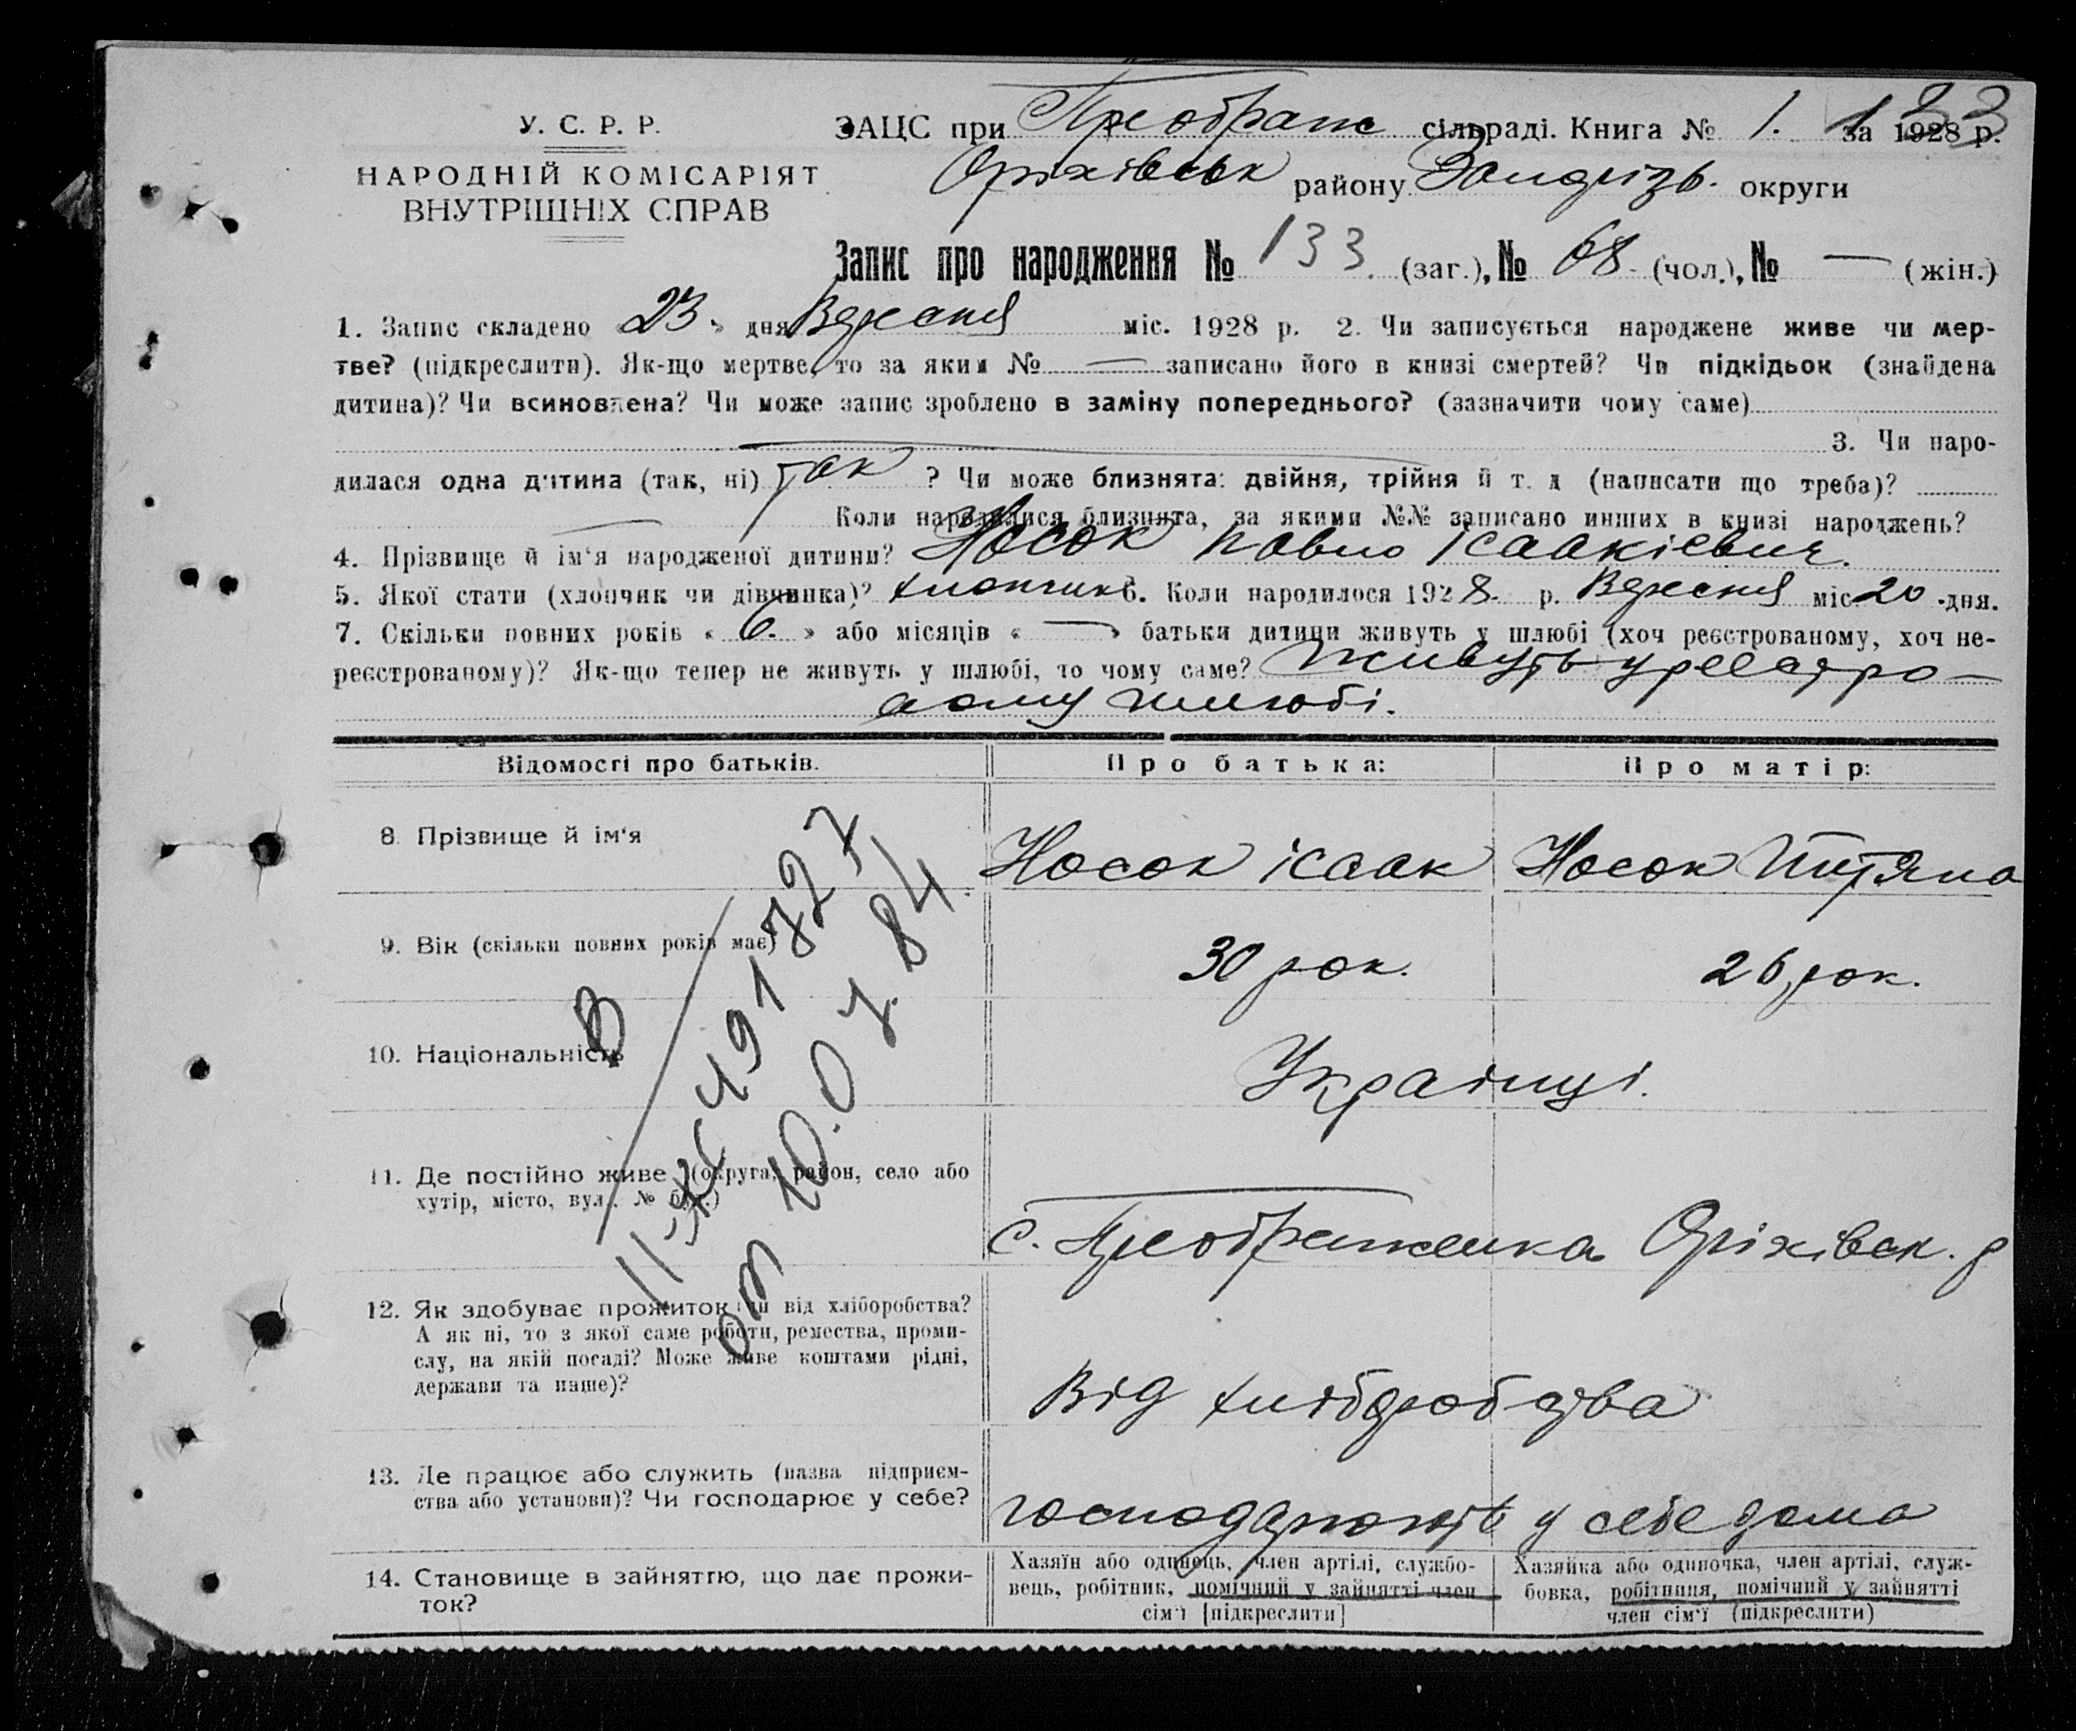 У. С. Р. Р.
НАРОДНІЙ КОМІСАРІЯТ
ВНУТРІШНІХ СПРАВ
ЗАЦС при Преображ сільраді. Книга № 1. за 1928 р.
133
Оріхівськ району Запоріз. округи
Запис про народження № 133 (заг.), № 68 (чол.), № — (жін.)
1. Запис складено „23“ дня Вересня міс. 1928 р. 2. Чи записується народжене живе чи мер-
тве? (підкреслити). Як-що мертве, то за яким № — записано його в книзі смертей? Чи підкідьок (знайдена
дитина)? Чи всиновлена? Чи може запис зроблено в заміну попереднього? (зазначити чому саме)
3. Чи наро-
дилася одна дитина (так, ні) так ? Чи може близнята: двійня, трійня й т. д (написати що треба)?
Коли народилися близнята, за якими №№ записано инших в книзі народжень?
4. Прізвище й ім‘я народженої дитини? Носок Павло Ісаакієвич.
5. Якої стати (хлопчик чи дівчинка)? хлопчик 6. Коли народилося 1928. р. Вересня міс. 20 дня.
7. Скільки повних років « 6. » або місяців « — » батьки дитини живуть у шлюбі (хоч реєстрованому, хоч не-
реєстрованому)? Як-що тепер не живуть у шлюбі, то чому саме? Живуть у реєстро-
аому шлюбі.
Відомості про батьків.
Про батька:
Про матір:
8. Прізвище й ім‘я
Носок Ісаак
Носок
9. Вік (скільки повних років має)
30 рок.
26 рок.
10. Національність
Українці.
11. Де постійно живе (округа, район, село або
хутір, місто, вул. № буд.)
с. Преображенка Оріхівск. р
12. Як здобуває прожиток чи від хліборобства?
А як ні, то з якої саме роботи, ремества, проми-
слу, на якій посаді? Може живе коштами рідні,
держави та инше)?
Від хліборобства
13. Де працює або служить (назва підприєм-
ства або установи)? Чи господарює у себе?
господарюють у себе дома
14. Становище в зайняттю, що дає прожи-
ток?
Хазяїн або одинець, член артілі, службо-
вець, робітник, помічний у зайнятті член
сім‘ї [підкреслити]
Хазяйка або одиночка, член артілі, служ-
бовка, робітниця, помічний у зайнятті
член сім‘ї (підкреслити)
В
II-ЖС 491727
от 10.07.84.